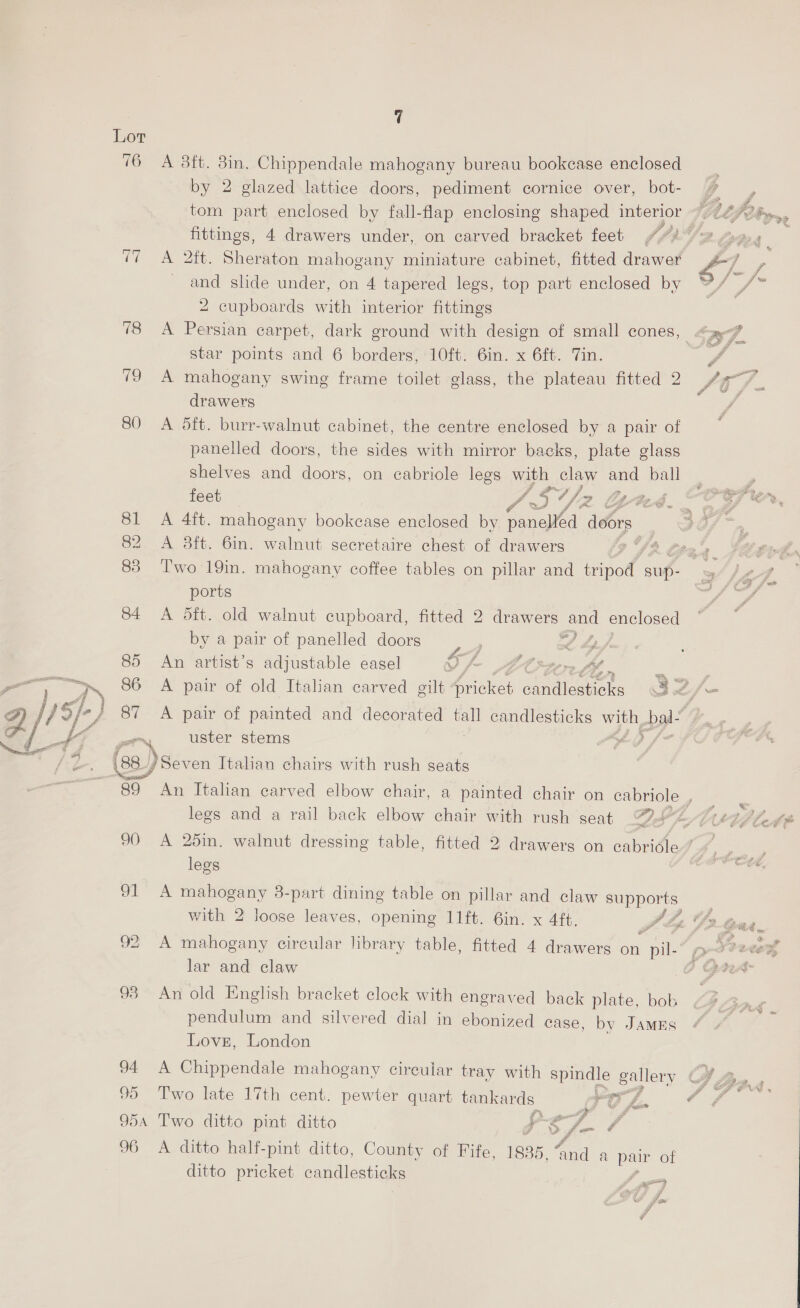 7
Lot
76 A 3ft. 3in. Chippendale mahogany bureau bookcase enclosed
by 2 glazed lattice doors, pediment cornice over, bot-
tom part enclosed by fall-flap enclosing shaped interior
fittings, 4 drawers under, on carved bracket feet
77 A 2ft. Sheraton mahogany miniature cabinet, fitted drawer
and slide under, on 4 tapered legs, top part enclosed by
2 cupboards with interior fittings
78 A Persian carpet, dark ground with design of small cones,
star points and 6 borders, 10ft. 6in. x 6ft. 7in.
79 A mahogany swing frame toilet glass, the plateau fitted 2
drawers
80 A 5ft. burr-walnut cabinet, the centre enclosed by a pair of
panelled doors, the sides with mirror backs, plate glass
shelves and doors, on cabriole legs with claw and ball
feet
81 A 4ft. mahogany bookcase enclosed by panelled doors
82 A 3ft. 6in. walnut secretaire chest of drawers
83 Two 19in. mahogany coffee tables on pillar and tripod sup-
ports
84 A 5ft. old walnut cupboard, fitted 2 drawers and enclosed
by a pair of panelled doors
85 An artist's adjustable easel
86 A pair of old Italian carved gilt pricket candlesticks 32/-
87 A pair of painted and decorated tall candlesticks with bal-
uster stems
88 Seven Italian chairs with rush seats
89 An Italian carved elbow chair, a painted chair on cabriole
legs and a rail back elbow chair with rush seat
90 A 25in. walnut dressing table, fitted 2 drawers on cabriole
legs
91 A mahogany 3-part dining table on pillar and claw supports
with 2 loose leaves, opening 11ft. 6in. x 4ft.
92 A mahogany circular library table, fitted 4 drawers on pil-
lar and claw
93 An old English bracket clock with engraved back plate, bob
pendulum and silvered dial in ebonized case, by James
Love, London
94 A Chippendale mahogany circular tray with spindle gallery
95 Two late 17th cent. pewter quart tankards
95A Two ditto pint ditto
96 A ditto half-pint ditto, County of Fife, 1835, and a pair of
ditto pricket candlesticks